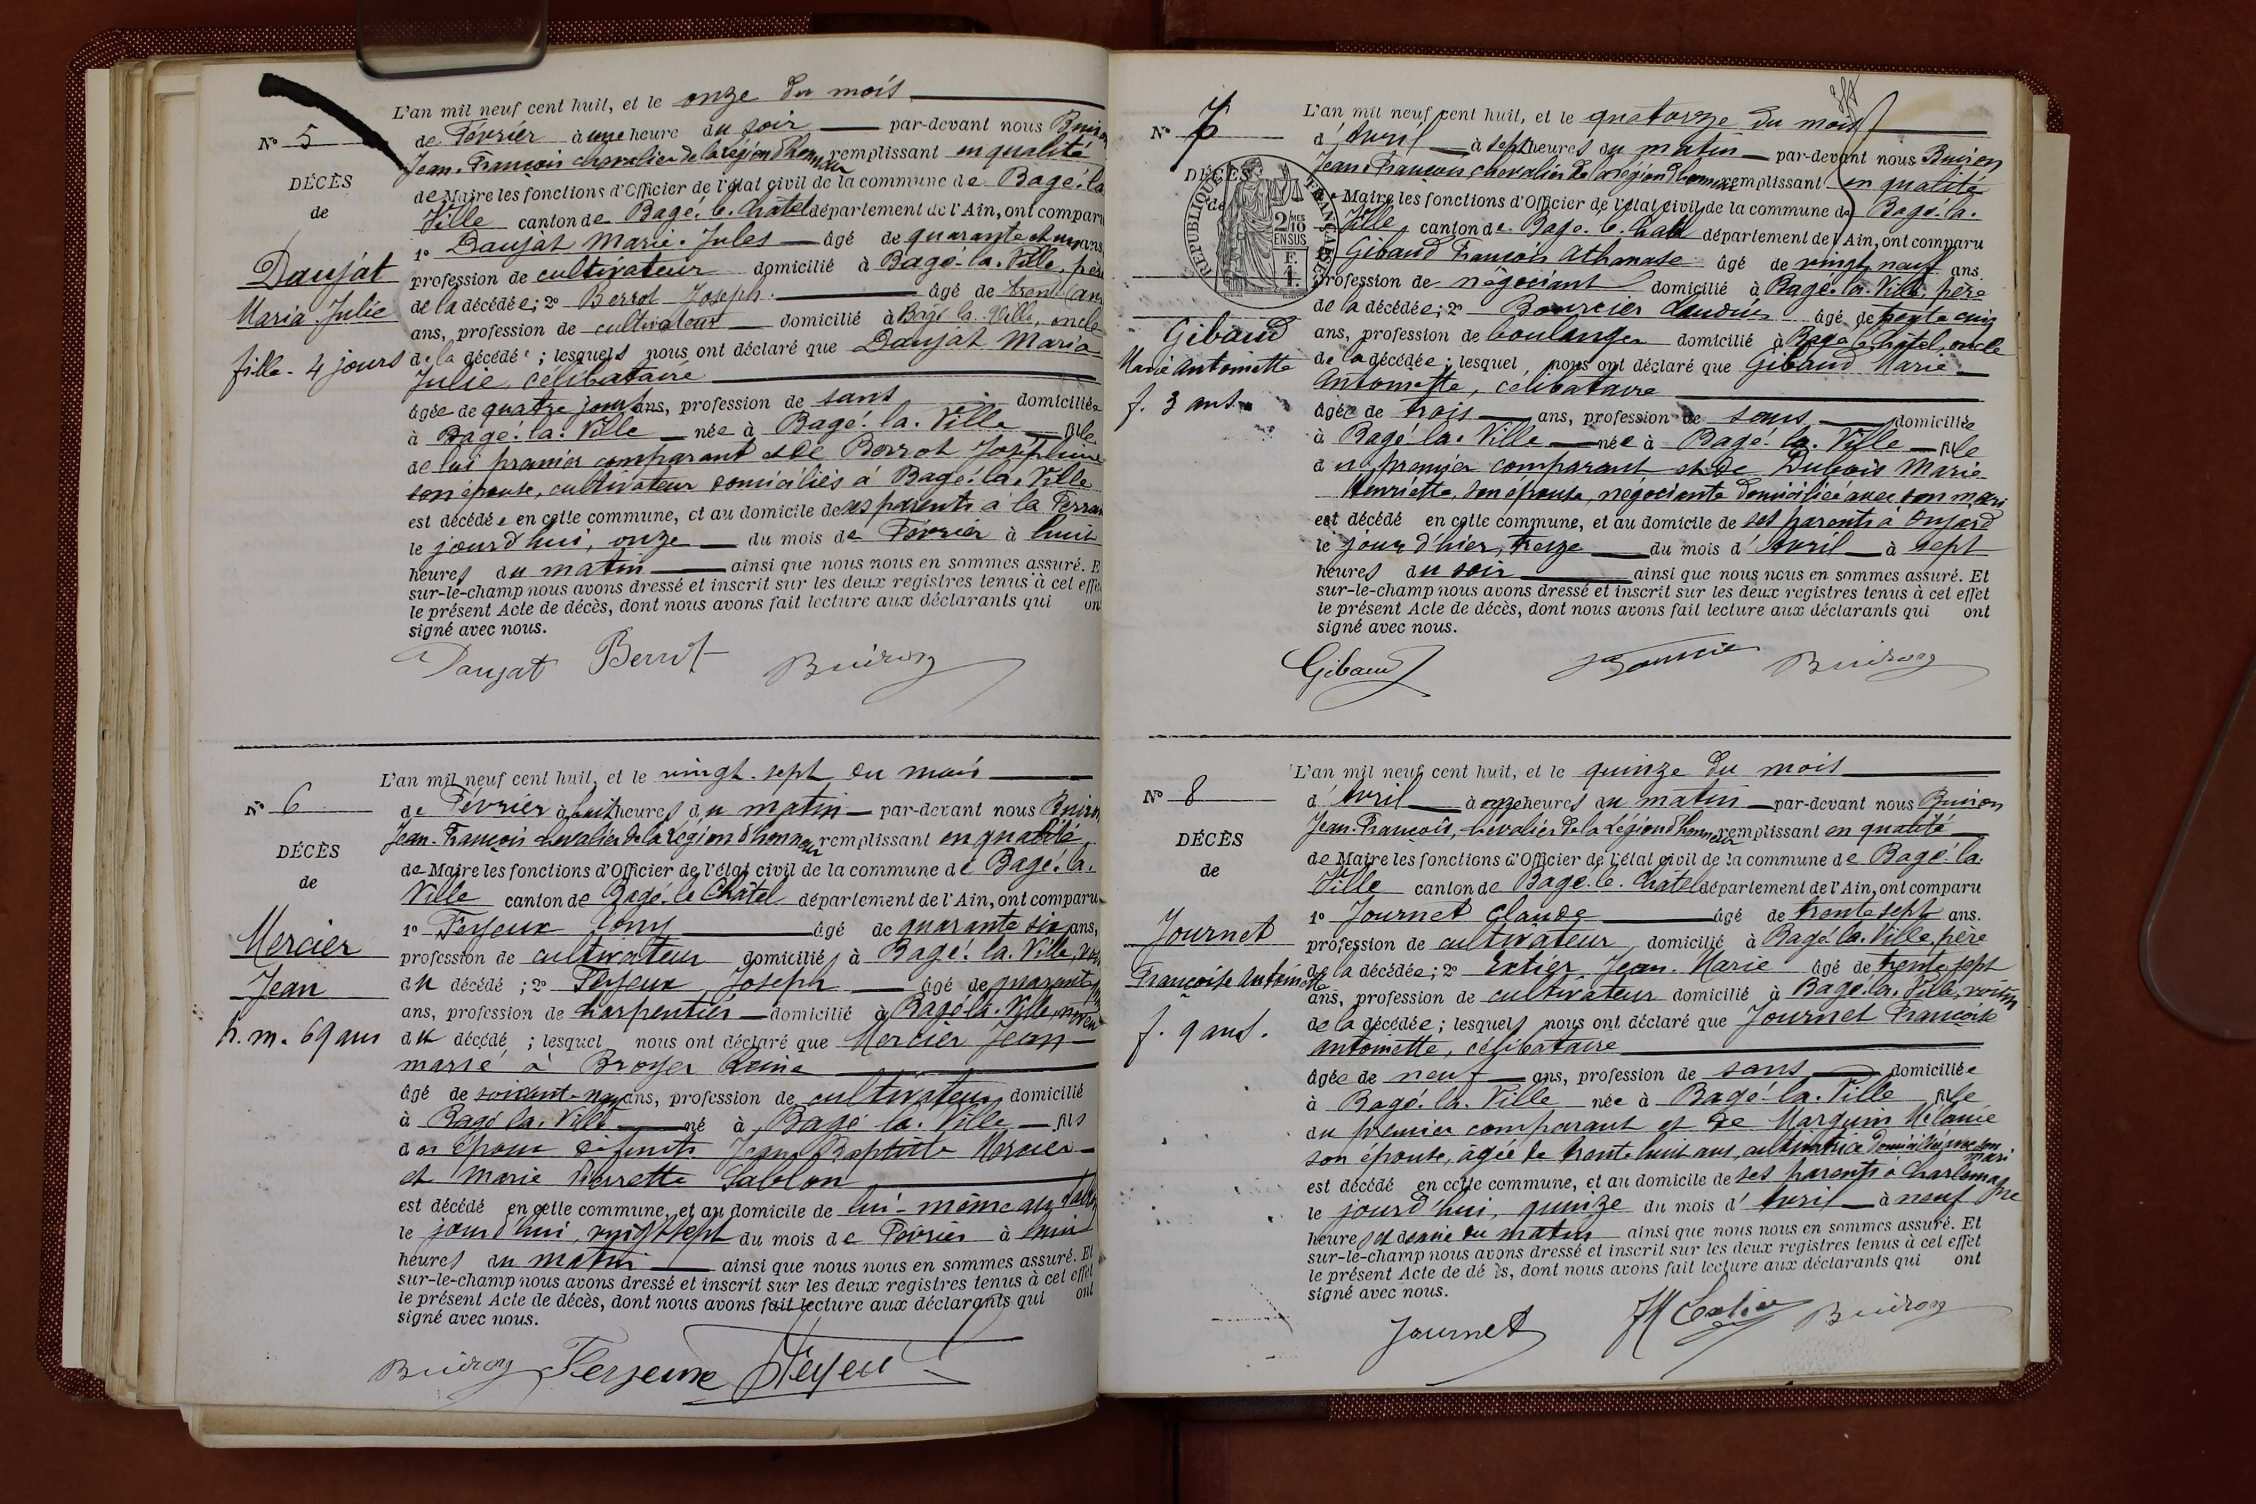 N° 5
DÉCÈS
de
Daujat
Maria Julie
fille - 4 jours
L'an mil neuf cent huit, et le onze du mois
de Février à une heure du soir par-devant nous
Jean-François chevalier de la légion d'honneur remplissant en qualité
de Maire les fonctions d'Officier de l'état civil de la commune de Bagé-la
Ville canton de Bagé-le-Châtel département de l'Ain, ont comparu
1° Daujat Marie-Jules âgé de quarante et un ans
profession de cultivateur domicilié à Bagé-la-Ville, père
de la décédée; 2° Berrot Joseph âgé de
ans, profession de cultivateur domicilié à Bagé la Ville, oncle
de la décédée; lesquels nous ont déclaré que Daujat Maria
Julie, célibataire
âgée de quatre jours ans, profession de sans domiciliée
à Bagé-la-Ville née à Bagé-la-Ville fille
de lui premier comparant et de Berrot Joséphine
son épouse, cultivateur domiciliés à Bagé-la-Ville
est décédée en cette commune, et au domicile de ses parents à la
le jourd'hui, onze du mois de Février à huit
heures du matin ainsi que nous nous en sommes assuré. E
sur-le-champ nous avons dressé et inscrit sur les deux registres tenus à cet effe
le présent Acte de décès, dont nous avons fait lecture aux déclarants qui on
signé avec nous.
Daujat Berrot Buiron
N° 6
DÉCÈS
de
Mercier
Jean
h. m. 69 ans
L'an mil neuf cent huit, et le vingt-sept du mois
de Février à huit heures du matin par-devant nous Buiron
Jean-François chevalier de la légion d'honneur remplissant en qualité
de Maire les fonctions d'Officier de l'état civil de la commune de Bagé-la-
Ville canton de Bagé-le Châtel département de l'Ain, ont comparu
1° Feyeux Tony âgé de quarante six ans,
profession de cultivateur domicilié à Bagé-la-Ville,
du décédé; 2° Feyeux Joseph âgé de quarante
ans, profession de charpentier domicilié à Bagé-la-Ville,
du décédé; lesquel nous ont déclaré que Mercier Jean
marié à Broyer Reine
âgé de soixante-neuf ans, profession de cultivateur domicilié
à Bagé la Ville né à Bagé-la-Ville fils
des époux défunts Jean Baptiste Mercier
et Marie Pierrette Sablon
est décédé en cette commune, et au domicile de lui-même
le jourd'hui, vingt sept du mois de Février à
heures du matin ainsi que nous nous en sommes assuré. Et
sur-le-champ nous avons dressé et inscrit sur les deux registres tenus à cet effet
le présent Acte de décès, dont nous avons fait lecture aux déclarants qui ont
signé avec nous.
Buiron Feyeux Feyeux
N° 7
DÉCÈS
de
RÉPUBLIQUE FRANÇAISE
2/10
EN SUS
F.
1.
Gibaud
Marie Antoinette
f. 3 ans
L'an mil neuf cent huit, et le quatorze du mois
d'Avril à sept heures du matin par-devant nous Buiron
Jean-François chevalier de la légion d'honneur remplissant en qualité
de Maire les fonctions d'Officier de l'état civil de la commune de Bagé-la-
Ville canton de Bagé-le-Châtel département de l'Ain, ont comparu
1° Gibaud François Athanase âgé de vingt neuf ans.
profession de négociant domicilié à Bagé-la-Ville, père
de la décédée; 2° Bourcier âgé de trente cinq
ans, profession de boulanger domicilié à Bagé le châtel, oncle
de la décédée; lesquel nous ont déclaré que Gibaud Marie
Antoinette, célibataire
âgée de trois ans, profession de sans domiciliée
à Bagé-la-Ville née à Bagé-la-Ville fille
du premier comparant et de Dubois Marie
Henriette, son épouse, négociante domiciliée avec son mari
est décédé en cette commune, et au domicile de ses parents à
le jour d'hier, treize du mois d'Avril à sept
heures du soir ainsi que nous nous en sommes assuré. Et
sur-le-champ nous avons dressé et inscrit sur les deux registres tenus à cet effet
le présent Acte de décès, dont nous avons fait lecture aux déclarants qui ont
signé avec nous.
Gibaud Buiron
N° 8
DÉCÈS
de
Journet
Françoise Antoinette
f. 9 ans.
L'an mil neuf cent huit, et le quinze du mois
d'Avril à onze heures du matin par-devant nous Buiron
Jean-François, chevalier de la Légion d'honneur remplissant en qualité
de Maire les fonctions d'Officier de l'état civil de la commune de Bagé-la-
Ville canton de Bagé-le-Châtel département de l'Ain, ont comparu
1° Journet Claude âgé de trente sept ans.
profession de cultivateur domicilié à Bagé-la-Ville, père
de la décédée; 2° Extier Jean-Marie âgé de trente sept
ans, profession de cultivateur domicilié à Bagé-la-Ville, voisin
de la décédée; lesquels nous ont déclaré que Journet Françoise
Antoinette, célibataire
âgée de neuf ans, profession de sans domiciliée
à Bagé-la-Ville née à Bagé-la-Ville fille
du premier comparant et de Marguin Mélanie
son épouse, âgée de trente huit ans, cultivatrice domiciliée avec son mari
est décédé en cette commune, et au domicile de ses parents à Charlemagne
le jourd'hui, quinze du mois d'Avril à neuf
heures et demie du matin ainsi que nous nous en sommes assuré. Et
sur-le-champ nous avons dressé et inscrit sur les deux registres tenus à cet effet
le présent Acte de dé ès, dont nous avons fait lecture aux déclarants qui ont
signé avec nous.
Journet JM Extier Buiron